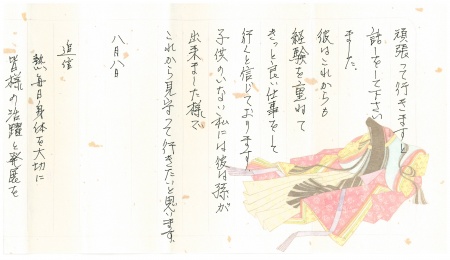 頑張って行きますと
話をして下さい
ました。
彼はこれからも
経験を重ねて
きっと良い仕事をして
行くと信じております
子供のいない私には彼は孫が
出来ました様で
これから見守って行きたいと思います。
八月八日
追信
熱い毎日身体を大切に
皆様の活躍と発展を